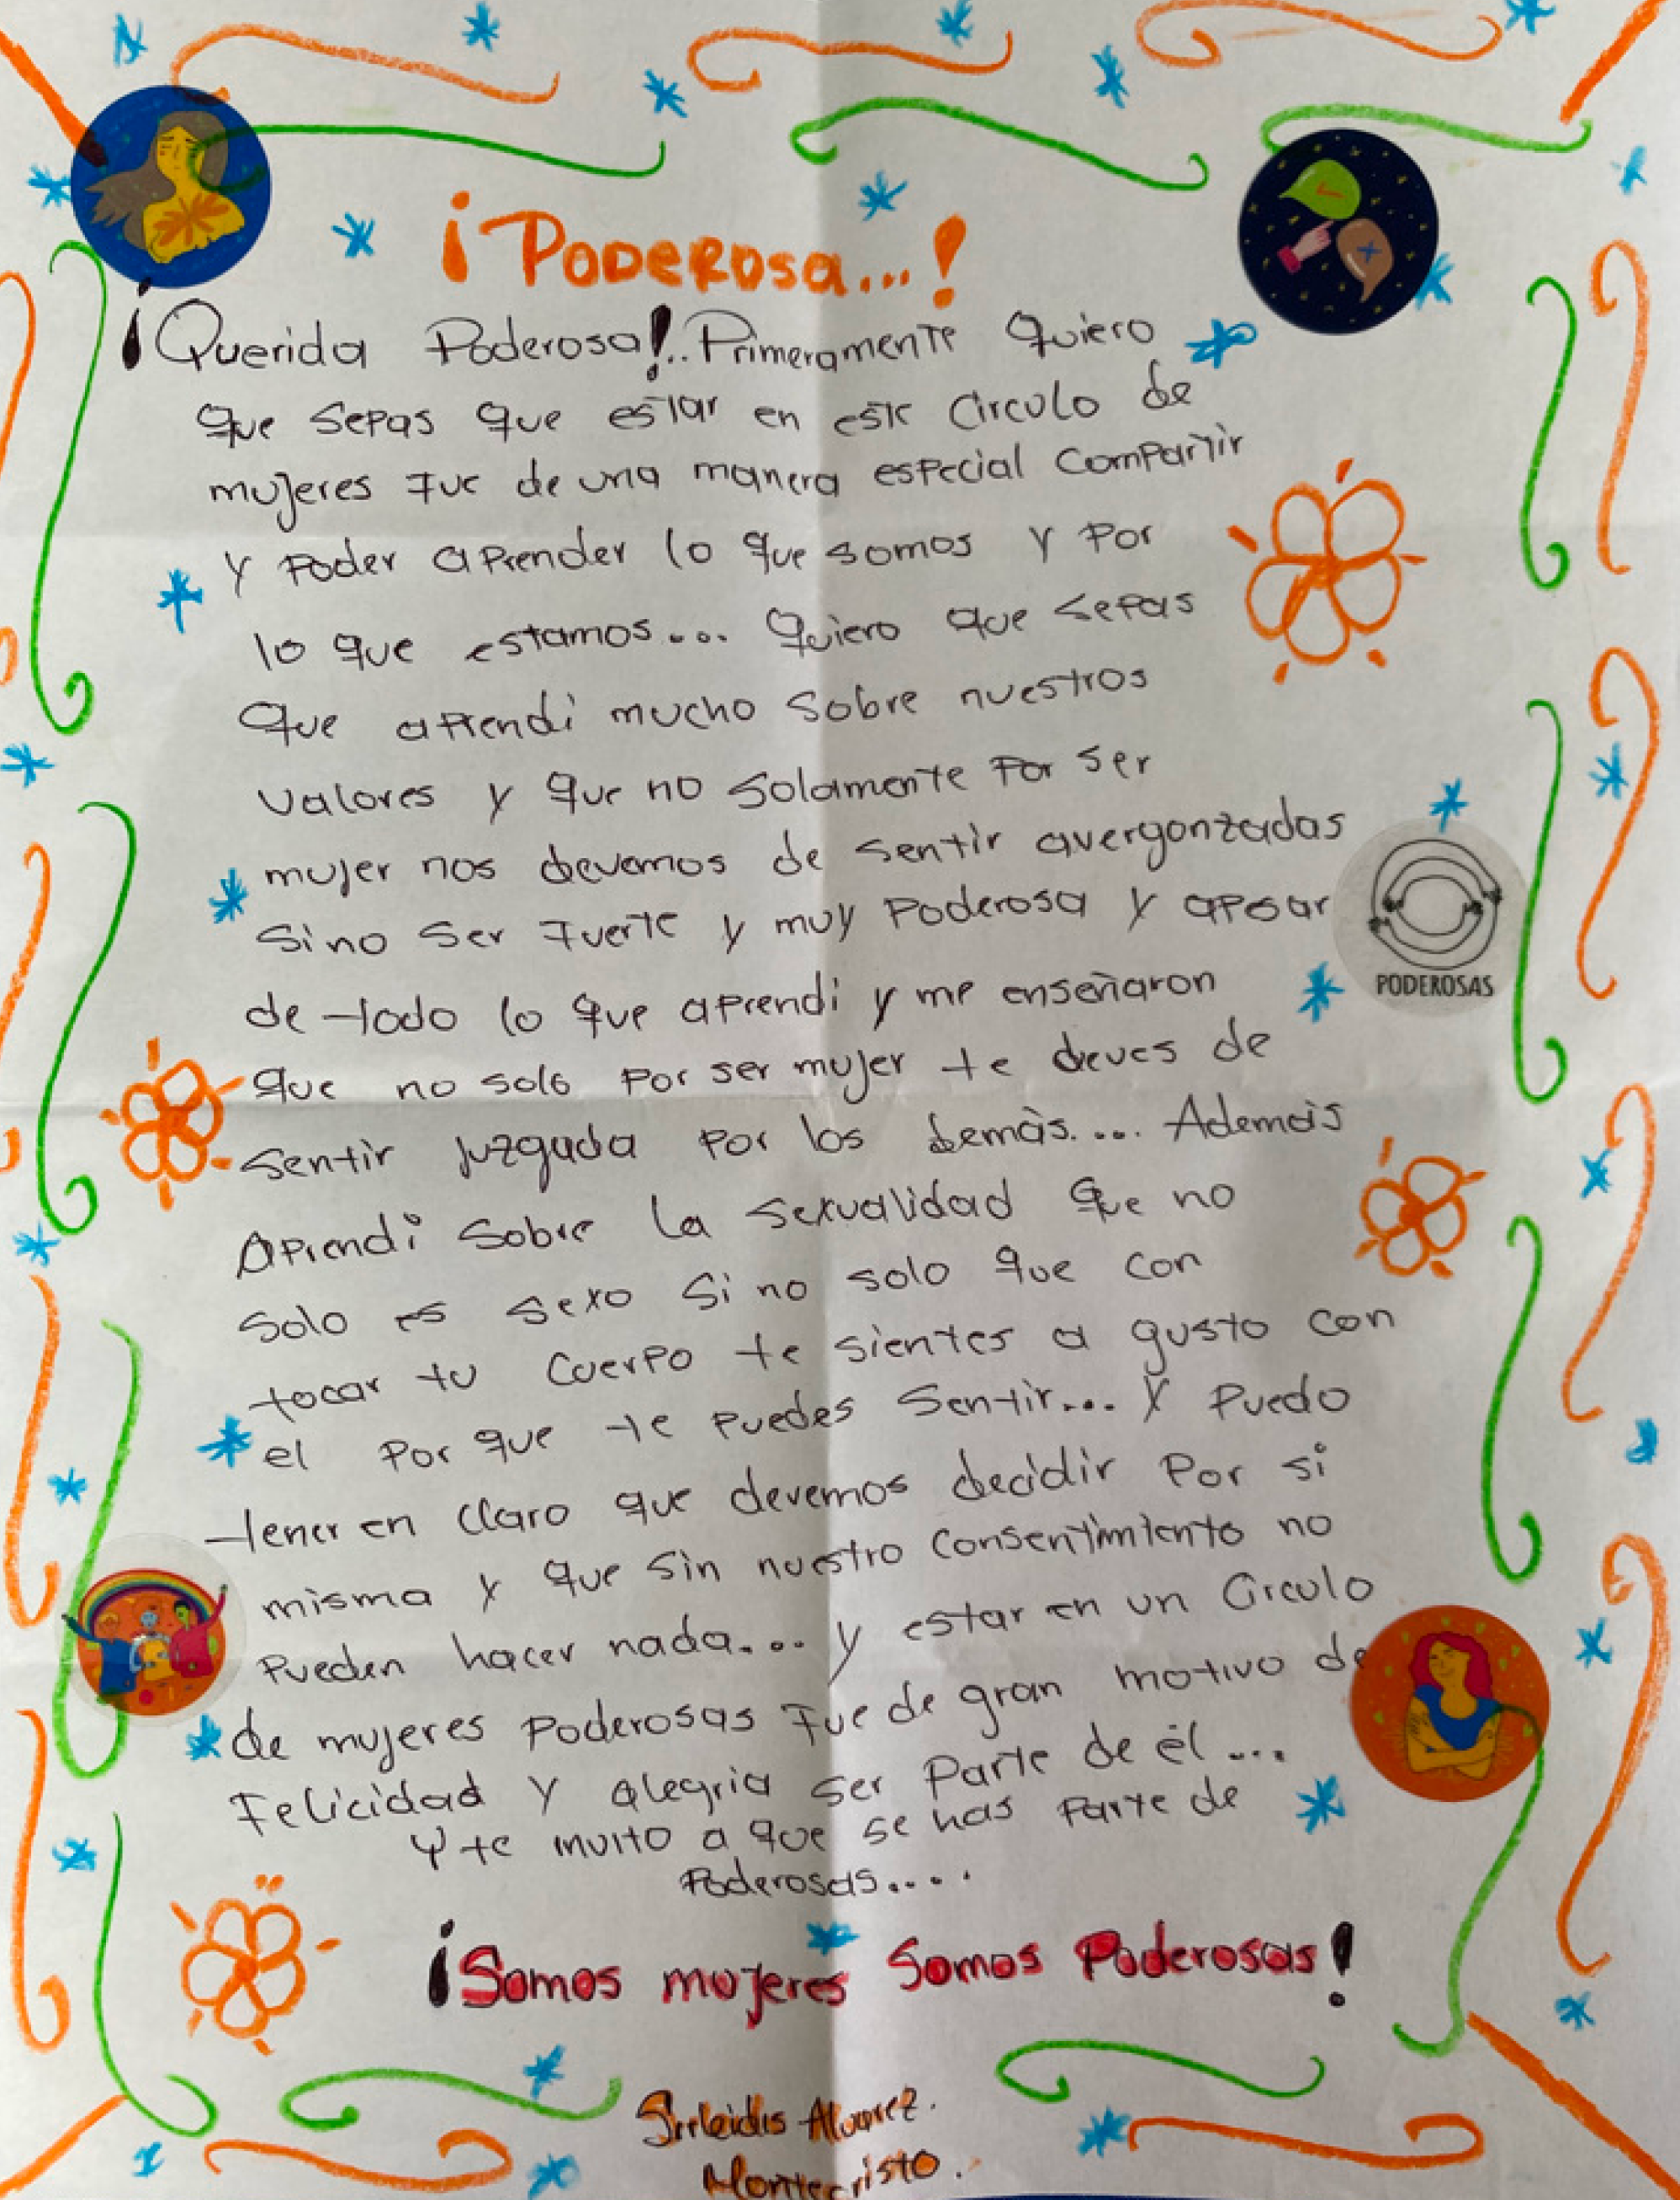 ¡Poderosa...!
¡Querida Poderosa!.. Primeramente Quiero
que sepas que estar en este Circulo de
mujeres fue de una manera especial Compartir
y Poder aprender lo que somos y Por
lo que estamos.... Quiero que sepas
Que aprendi mucho sobre nuestros
valores y que no solamente Por ser
mujer nos devemos de sentir avergonzadas
Sino ser Fuerte y muy Poderosa y apesar
de todo lo que aprendi y me enseñaron
que no solo Por ser mujer te deves de
sentir Juzgada Por los demàs.... Ademàis
Aprendi Sobre la sexualidad que no
solo es sexo Si no solo que con
tocar tu Cuerpo te sientes a gusto con
el Por que te puedes sentir... Y Puedo
tener en Claro que devemos decidir Por si
misma y que sin nuestro Consentimiento no
Pueden hacer nada.... y estar en un Circulo
de mujeres Poderosas Fue de gran motivo de
Felicidad Y alegria ser Parte de él ....
Y te invito a que se has Parte de
Poderosas....
PODEROSAS
¡Somos mujeres Somos Poderosas!
Sirleidis Alvarez.
Montecristo.